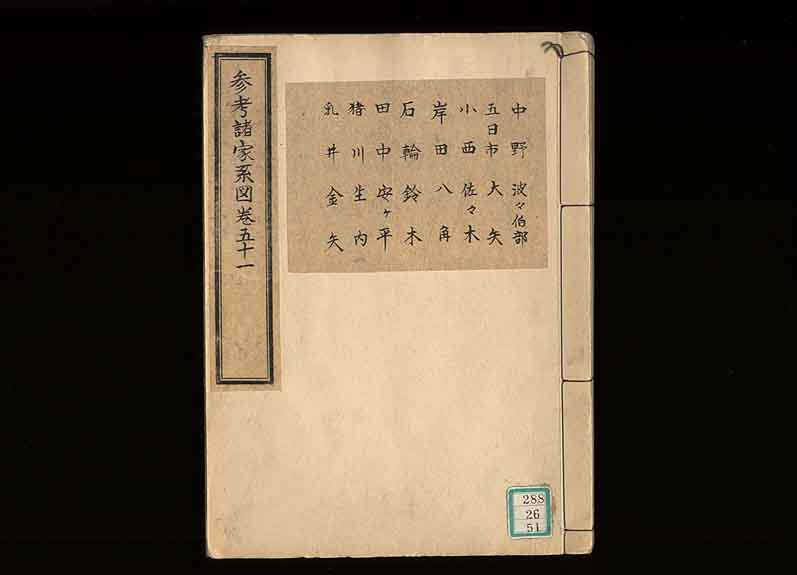 参考諸家系図巻五十一
中野 波々伯部
五日市 大矢
小西 佐々木
岸田 八角
石輪 鈴木
田中 安ヶ平
猪川 生内
乳井 金矢
288
26
51